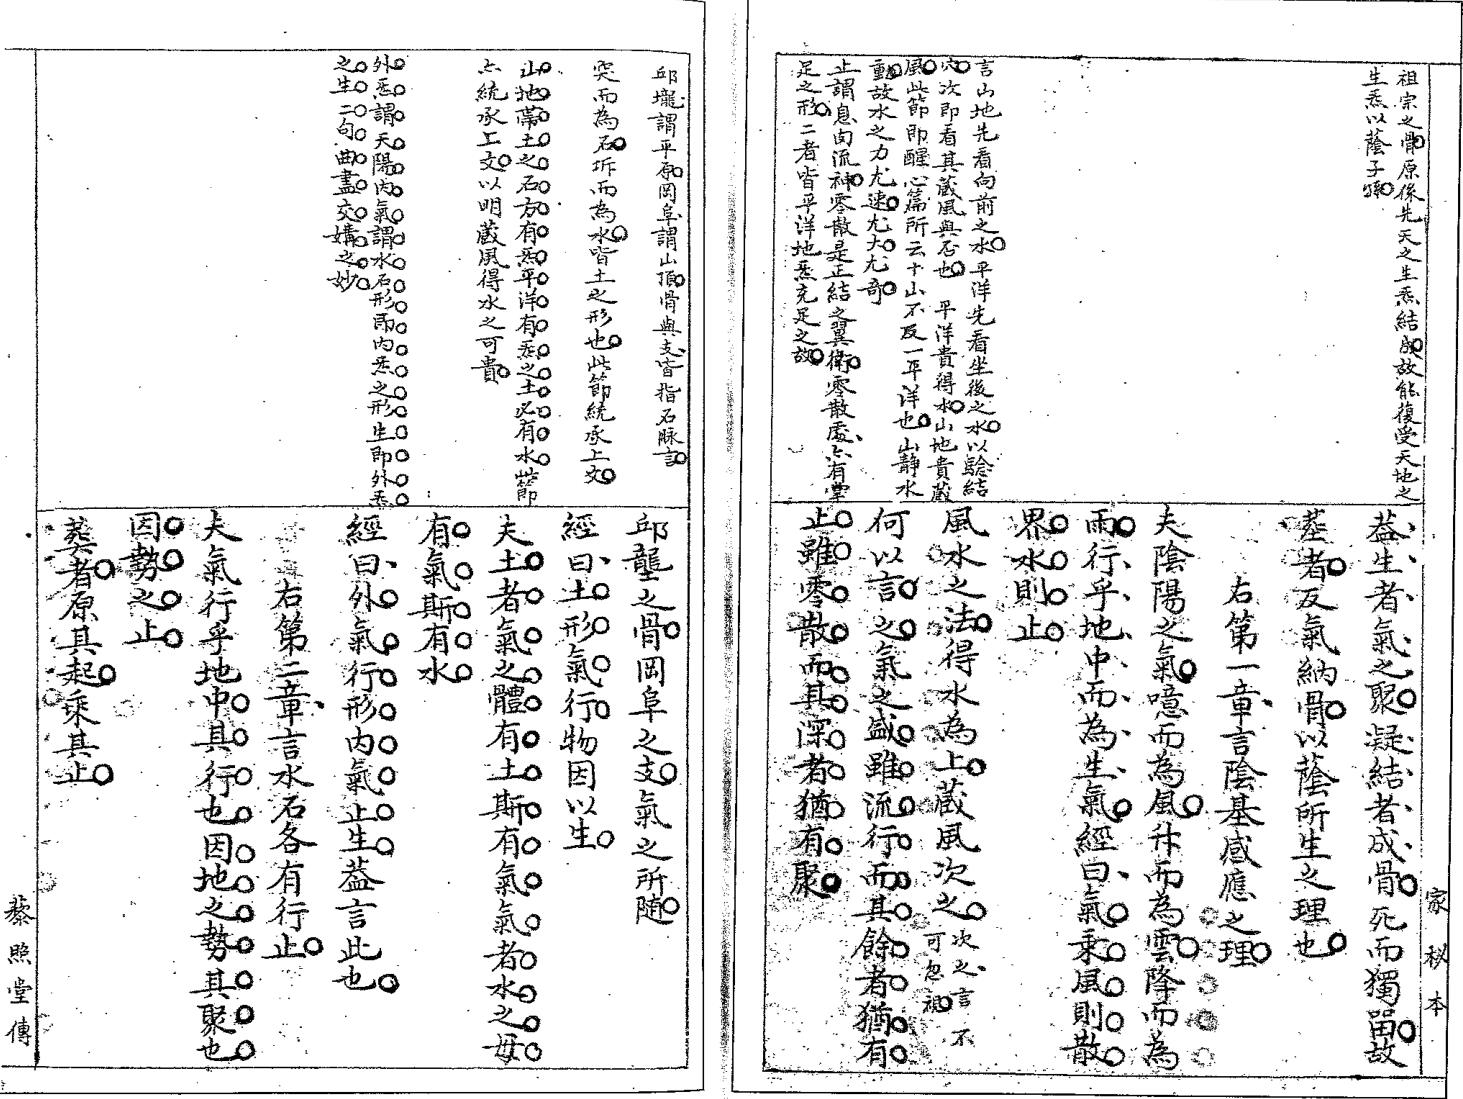 祖宗之骨原係先天之生炁結成故能復受天地之
生炁以蔭子孫
言山地先看向前之水平洋先看坐後之水以驗結
穴次即看其藏風與否也　平洋貴得水山地貴藏
風此節即醒心篇所云十山不及一平洋也山靜水
動故水之力尤速尤大尤奇
止謂息肉流神零散是正結之翼衛零散處亦有掌
足之形二者皆平洋地炁充足之故
蓋生者氣之聚凝結者成骨死而獨留故
塟者反氣納骨以蔭所生之理也
右第一章言陰基感應之理
夫陰陽之氣噫而為風升而為雲降而為
雨行乎地中而為生氣經曰氣乘風則散
界水則止
風水之法得水為上藏風次之次之言不
可忽視
何以言之氣之盛雖流行而其餘者猶有
止雖零散而其深者猶有聚
家秘本
邱壠謂平原岡阜謂山頂骨與支皆指石脉言
突而為石坼而為水皆土之形也此節統承上文
山地帶土之石方有炁平洋有炁之土必有水此節
亦統承上文以明藏風得水之可貴
外炁謂天陽內氣謂水石形即內炁之形生即外炁
之生二句曲盡交媾之妙
邱壟之骨岡阜之支氣之所隨
經曰土形氣行物因以生
夫土者氣之體有土斯有氣氣者水之母
有氣斯有水
經曰外氣行形內氣止生蓋言此也
右第二章言水石各有行止
夫氣行乎地中其行也因地之勢其聚也
因勢之止
葬者原其起乘其止
藜照堂傳